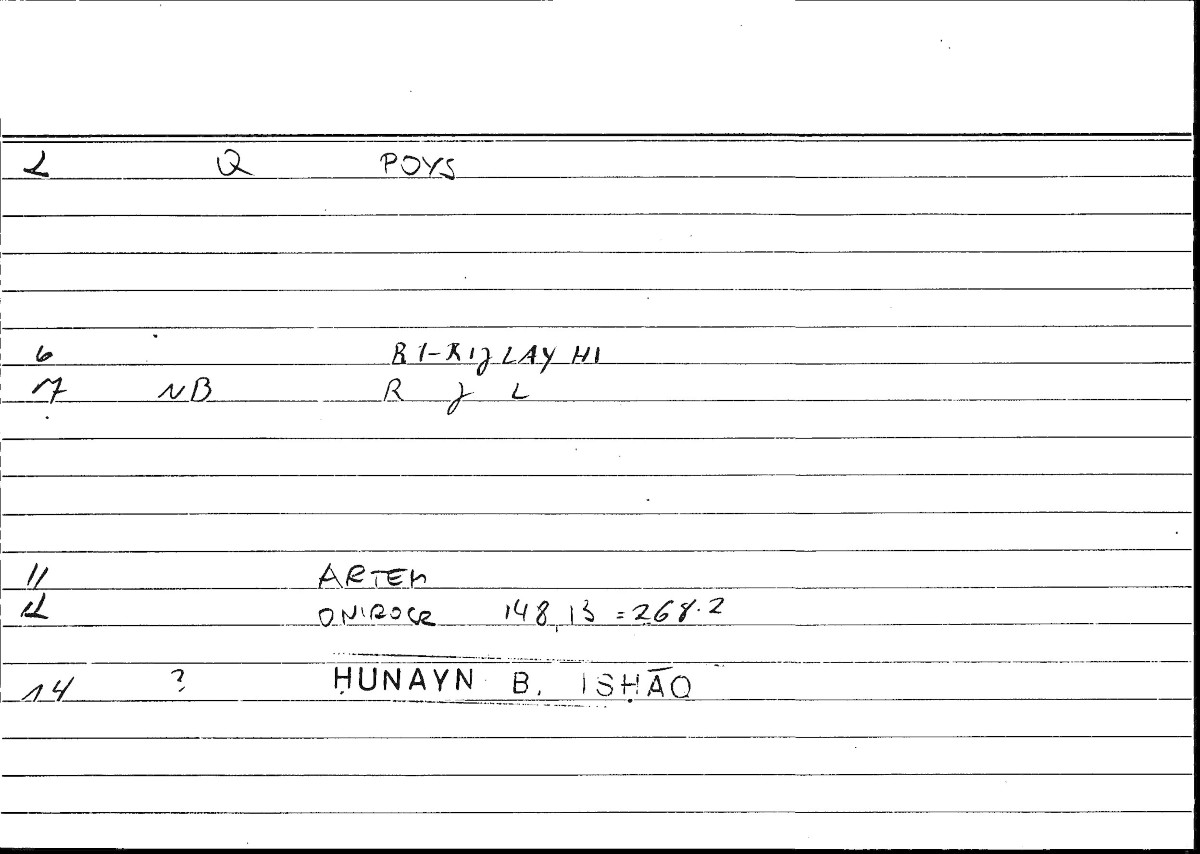 2 Q POYS
6 BI-RIJLAYHI
7 NB R J L
11 ARTEM
12 ONIROCR 148,13 = 268.2
14 ? ḤUNAYN B. ISḤĀQ